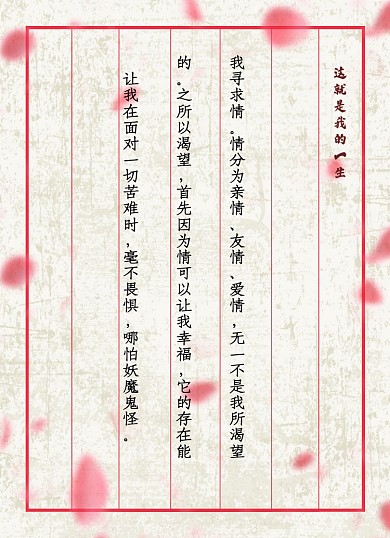 这就是我的一生
我寻求情。情分为亲情、友情、爱情，无一不是我所渴望
的。之所以渴望，首先因为情可以让我幸福，它的存在能
让我在面对一切苦难时，毫不畏惧，哪怕妖魔鬼怪。